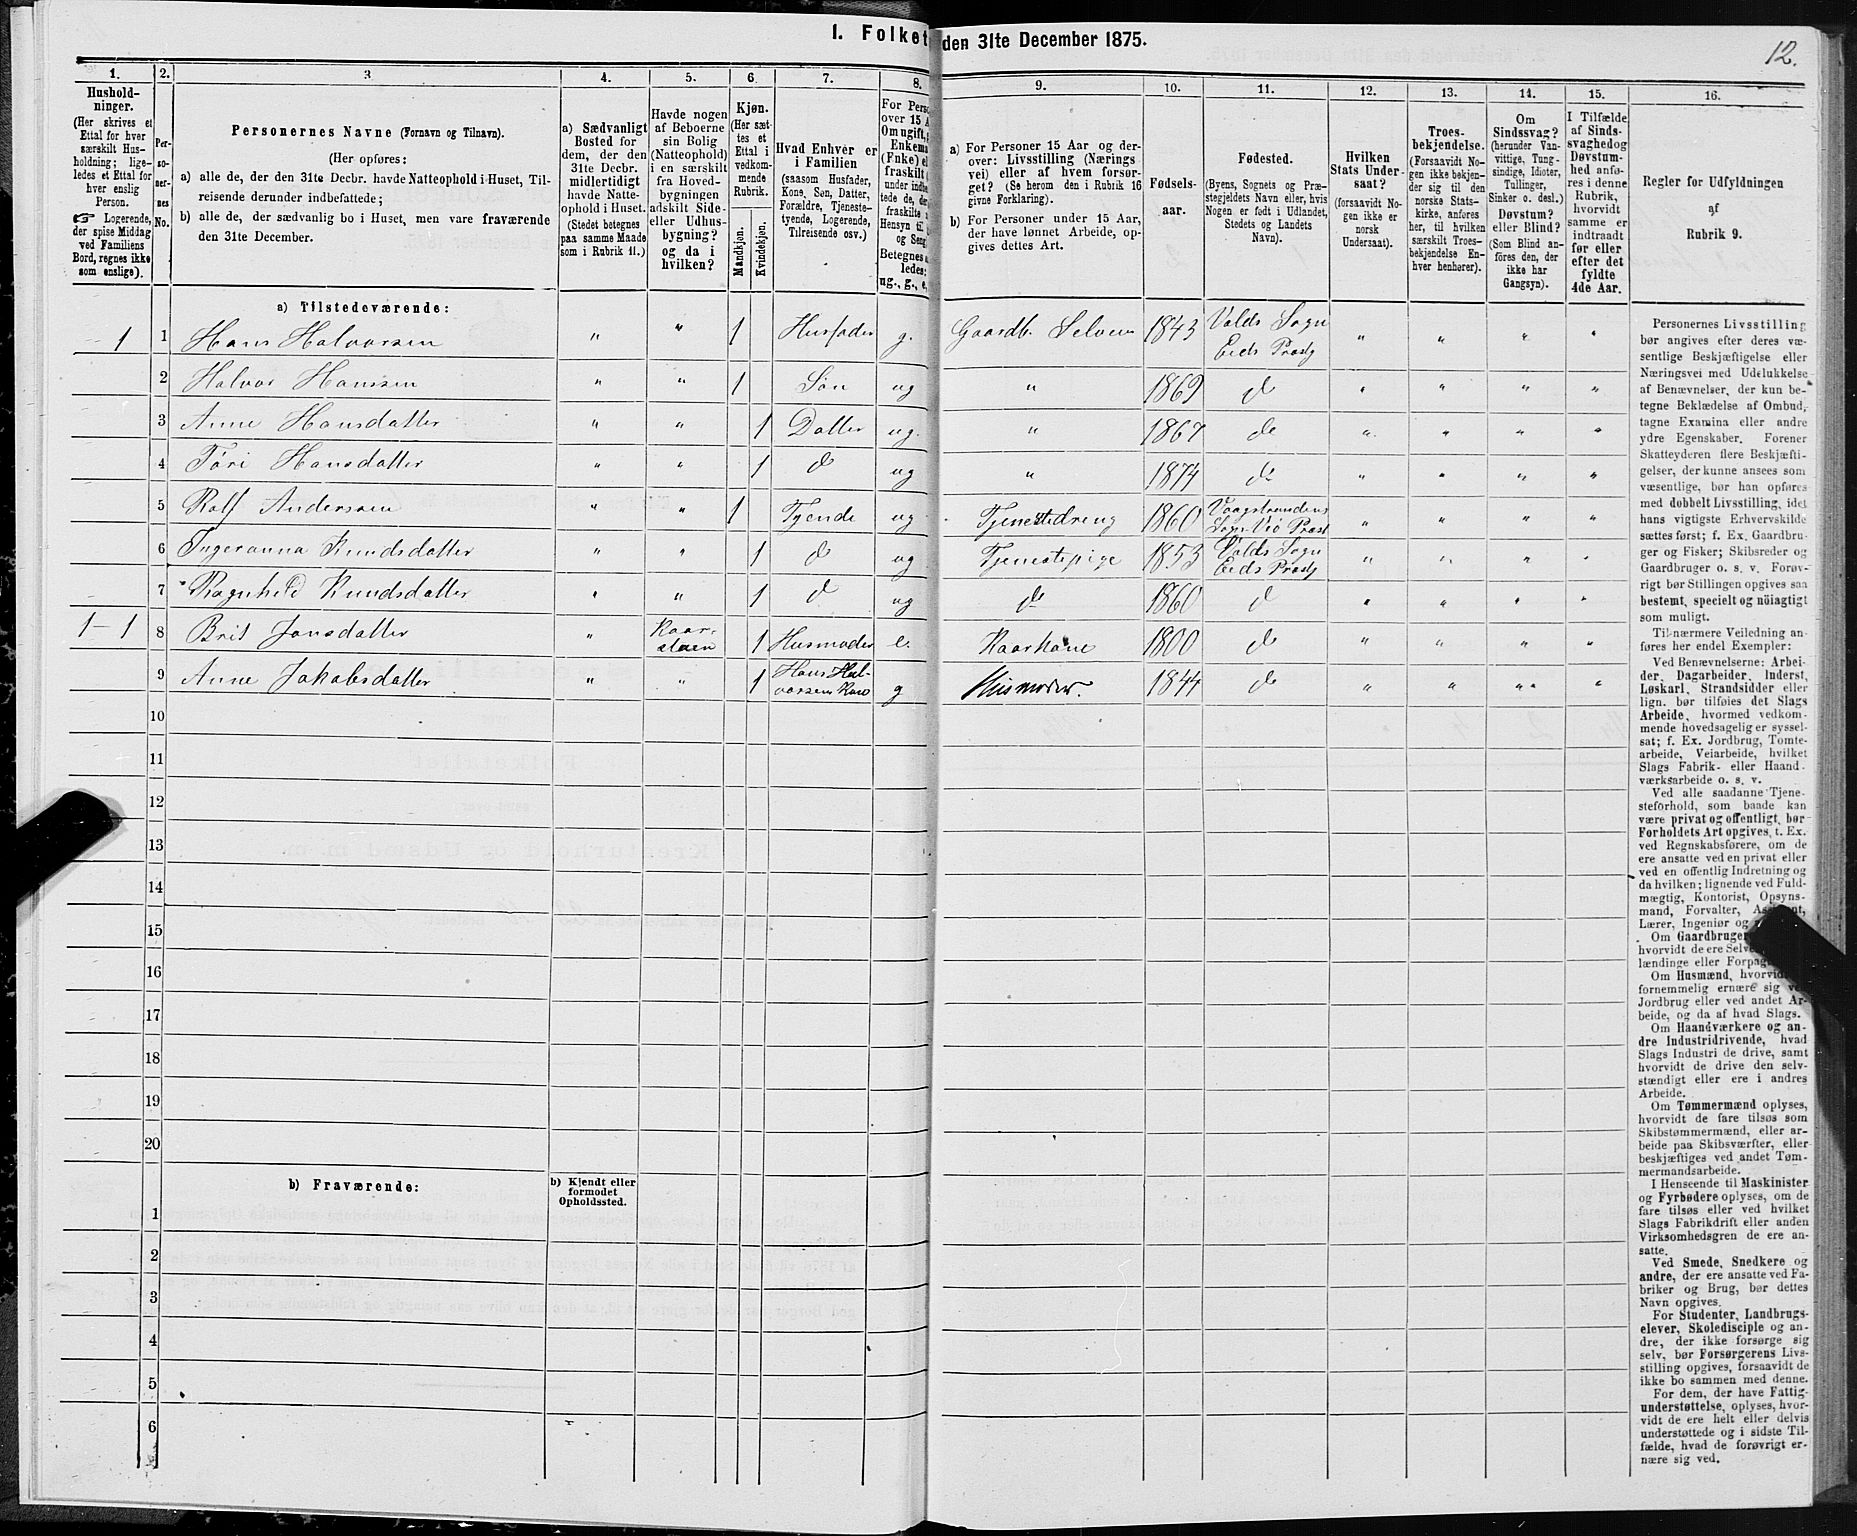 I. Folket
den 31te December 1875.
12.
1.
2.
3
4.
5.
6
7.
8.
9.
10.
11.
12.
13.
14.
15.
16.
Hushold-
ninger.
(Her skrives et
Ettal for hver
særskilt Hus-
holdning; lige-
ledes et Ettal for
hver enslig
Person.
☞ Logerende,
der spise Middag
ved Familiens
Bord, regnes ikke
som enslige).
Per-
so-
ner-
nes
No.
Personernes Navne (Fornavn og Tilnavn).
(Her opføres:
a) alle de, der den 31te Decbr. havde Natteophold i Huset, Til-
reisende derunder indbefattede;
b) alle de, der sædvanlig bo i Huset, men vare fraværende
den 31te December.
a) Sædvanligt
Bosted for
dem, der den
31te Decbr.
midlertidigt
havde Natte-
ophold i Huset.
(Stedet betegnes
paa samme Maade
som i Rubrik 11.)
Havde nogen
af Beboerne
sin Bolig
(Natteophold)
i en særskilt
fra Hoved-
bygningen
adskilt Side-
eller Udhus-
bygning?
og da i
hvilken?
Kjøn.
(Her sæt-
tes et
Ettal i
vedkom-
mende
Rubrik.
Mandkjøn.
Kvindekjøn.
Hvad Enhver er
i Familien
(saasom Husfader,
Kone, Søn, Datter,
Forældre, Tjeneste-
tyende, Logerende,
Tilreisende osv.)
For Pers
over 15 A
Om ugift,
Enkema
(Fnke) el
fraskilt
under indbe
tede de, de
fraskilte
Hensyn til
og Seng
Betegnes
ledes:
ug., g., e,
a) For Personer 15 Aar og der-
over: Livsstilling (Nærings
vei) eller af hvem forsør-
get? (Se herom den i Rubrik 16
givne Forklaring).
b) For Personer under 15 Aar,
der have lønnet Arbeide, op-
gives dettes Art.
Fødsels-
aar.
Fødested.
(Byens, Sognets og Præ-
stegjeldets Navn eller, hvis
Nogen er født i Udlandet,
Stedets og Landets
Navn).
Hvilken
Stats Under-
saat?
(forsaavidt No-
gen ikke er
norsk
Undersaat).
Troes-
bekjendelse.
(Forsaavidt No-
gen ikke bekjen-
der sig til den
norske Stats-
kirke, anføres
her, til hvilken
særskilt Troes-
bekjendelse En-
hver henhører).
Om
Sindssvag?
(herunder Van-
vittige, Tung-
sindige, Idioter,
Tullinger,
Sinker o. desl.)
Døvstum?
eller Blind?
(Som Blind an-
føres den, der
ikke har
Gangsyn).
I Tilfælde
af Sinds-
svaghed og
Døvstum-
hed anfø-
res i denne
Rubrik,
hvorvidt
samme er
indtraadt
før eller
efter det
fyldte
4de Aar.
Regler for Udfyldningen
af
Rubrik 9.
a) Tilstedeværende:
1 1 Hans Halvorsen " " 1 Husfader g. Gaardb. Selveier 1843 Volds Sogn Eids Præstg " " " "
2 Halvor Hanssen " " 1 Søn ug " 1869 do " " " "
3 Anne Hansdatter " " 1 Datter ug. " 1867 do " " " "
4 Töri Hansdatter " " 1 do ug " 1874 do " " " "
5 Rolf Anderssen " " 1 Tyende ug Tjenestedreng 1860 Vaagstrandens Sogn Veø Præst " " " "
6 Ingeranna Knudsdatter " " 1 do ug Tjenestepige 1853 Volds Sogn Eids Præstg " " " "
7 Ragnhild Knudsdatter " " 1 do ug do 1860 do " " " "
1-1 8 Brit Jonsdatter " Kaarstuen 1 Husmoder e. Kaarkone 1800 do " " " "
9 Anne Jakobsdatter " " 1 Hans Halvorsens Kone g Husmoder. 1844 do " " " "
10
11
12
13
14
15
16
17
18
19
20
b) Fraværende:
b) Kjendt eller
formodet
Opholdssted.
1
2
3
4
5
6
Personernes Livsstilling
bør angives efter deres væ-
sentlige Beskjæftigelse eller
Næringsvei med Udelukkelse
af Benævnelser, der kun be-
tegne Beklædelse af Ombud,
tagne Examina eller andre
ydre Egenskaber. Forener
Skatteyderen flere Beskjæfti-
gelser, der kunne ansees som
væsentlige, bør han opføres
med dobbelt Livsstilling, idet
hans vigtigste Erhvervskilde
sættes først; f. Ex. Gaardbru-
ger og Fisker; Skibsreder og
Gaardbruger o. s. v. Forøv-
rigt bør Stillingen opgives saa
bestemt, specielt og nöiagtigt
som muligt.
Til nærmere Veiledning an-
føres her endel Exempler:
Ved Benævnelserne: Arbei-
der, Dagarbeider, Inderst,
Løskarl, Strandsidder eller
lign. bør tilføies det Slags
Arbeide, hvormed vedkom-
mende hovedsagelig er syssel-
sat; f. Ex. Jordbrug, Tomte-
arbeide, Veiarbeide, hvilket
Slags Fabrik- eller Haand-
værksarbeide o. s. v.
Ved alle saadanne Tjene-
steforhold, som baade kan
være privat og offentligt, bør
Forholdets Art opgives, t. Ex.
ved Regnskabsførere, om de
ere ansatte ved en privat eller
ved en offentlig Indretning og
da hvilken; lignende ved Fuld-
mægtig, Kontorist, Opsyns-
mand, Forvalter,
Lærer, Ingeniør og
Om Gaardbruger
hvorvidt de ere Selve
lændinge eller Forpag
Om Husmænd, hvorvid
fornemmelig ernære sig ved
Jordbrug eller ved andet Ar-
beide, og da af hvad Slags.
Om Haandværkere og an-
dre Industridrivende, hvad
Slags Industri de drive, samt
hvorvidt de drive den selv-
stændigt eller ere i andres
Arbeide.
Om Tømmermænd oplyses,
hvorvidt de fare tilsøs som
Skibstømmermænd, eller ar-
beide paa Skibsværfter, eller
beskjæftiges ved andet Tøm-
mermandsarbeide.
I Henseende til Maskinister
og Fyrbødere oplyses, om de
fare tilsøs eller ved hvilket
Slags Fabrikdrift eller anden
Virksomhedsgren de ere an-
satte.
Ved Smede, Snedkere og
andre, der ere ansatte ved Fa-
briker og Brug, bør dettes
Navn opgives.
For Studenter, Landbrugs-
elever, Skoledisciple og an-
dre, der ikke forsørge sig
selv, bør Forsørgerens Livs-
stilling opgives, forsaavidt de
ikke bo sammen med denne.
For dem, der have Fattig-
understøttelse, oplyses, hvor-
vidt de ere helt eller delvis
understøttede og i sidste Til-
fælde, hvad de forøvrigt er-
nære sig ved.